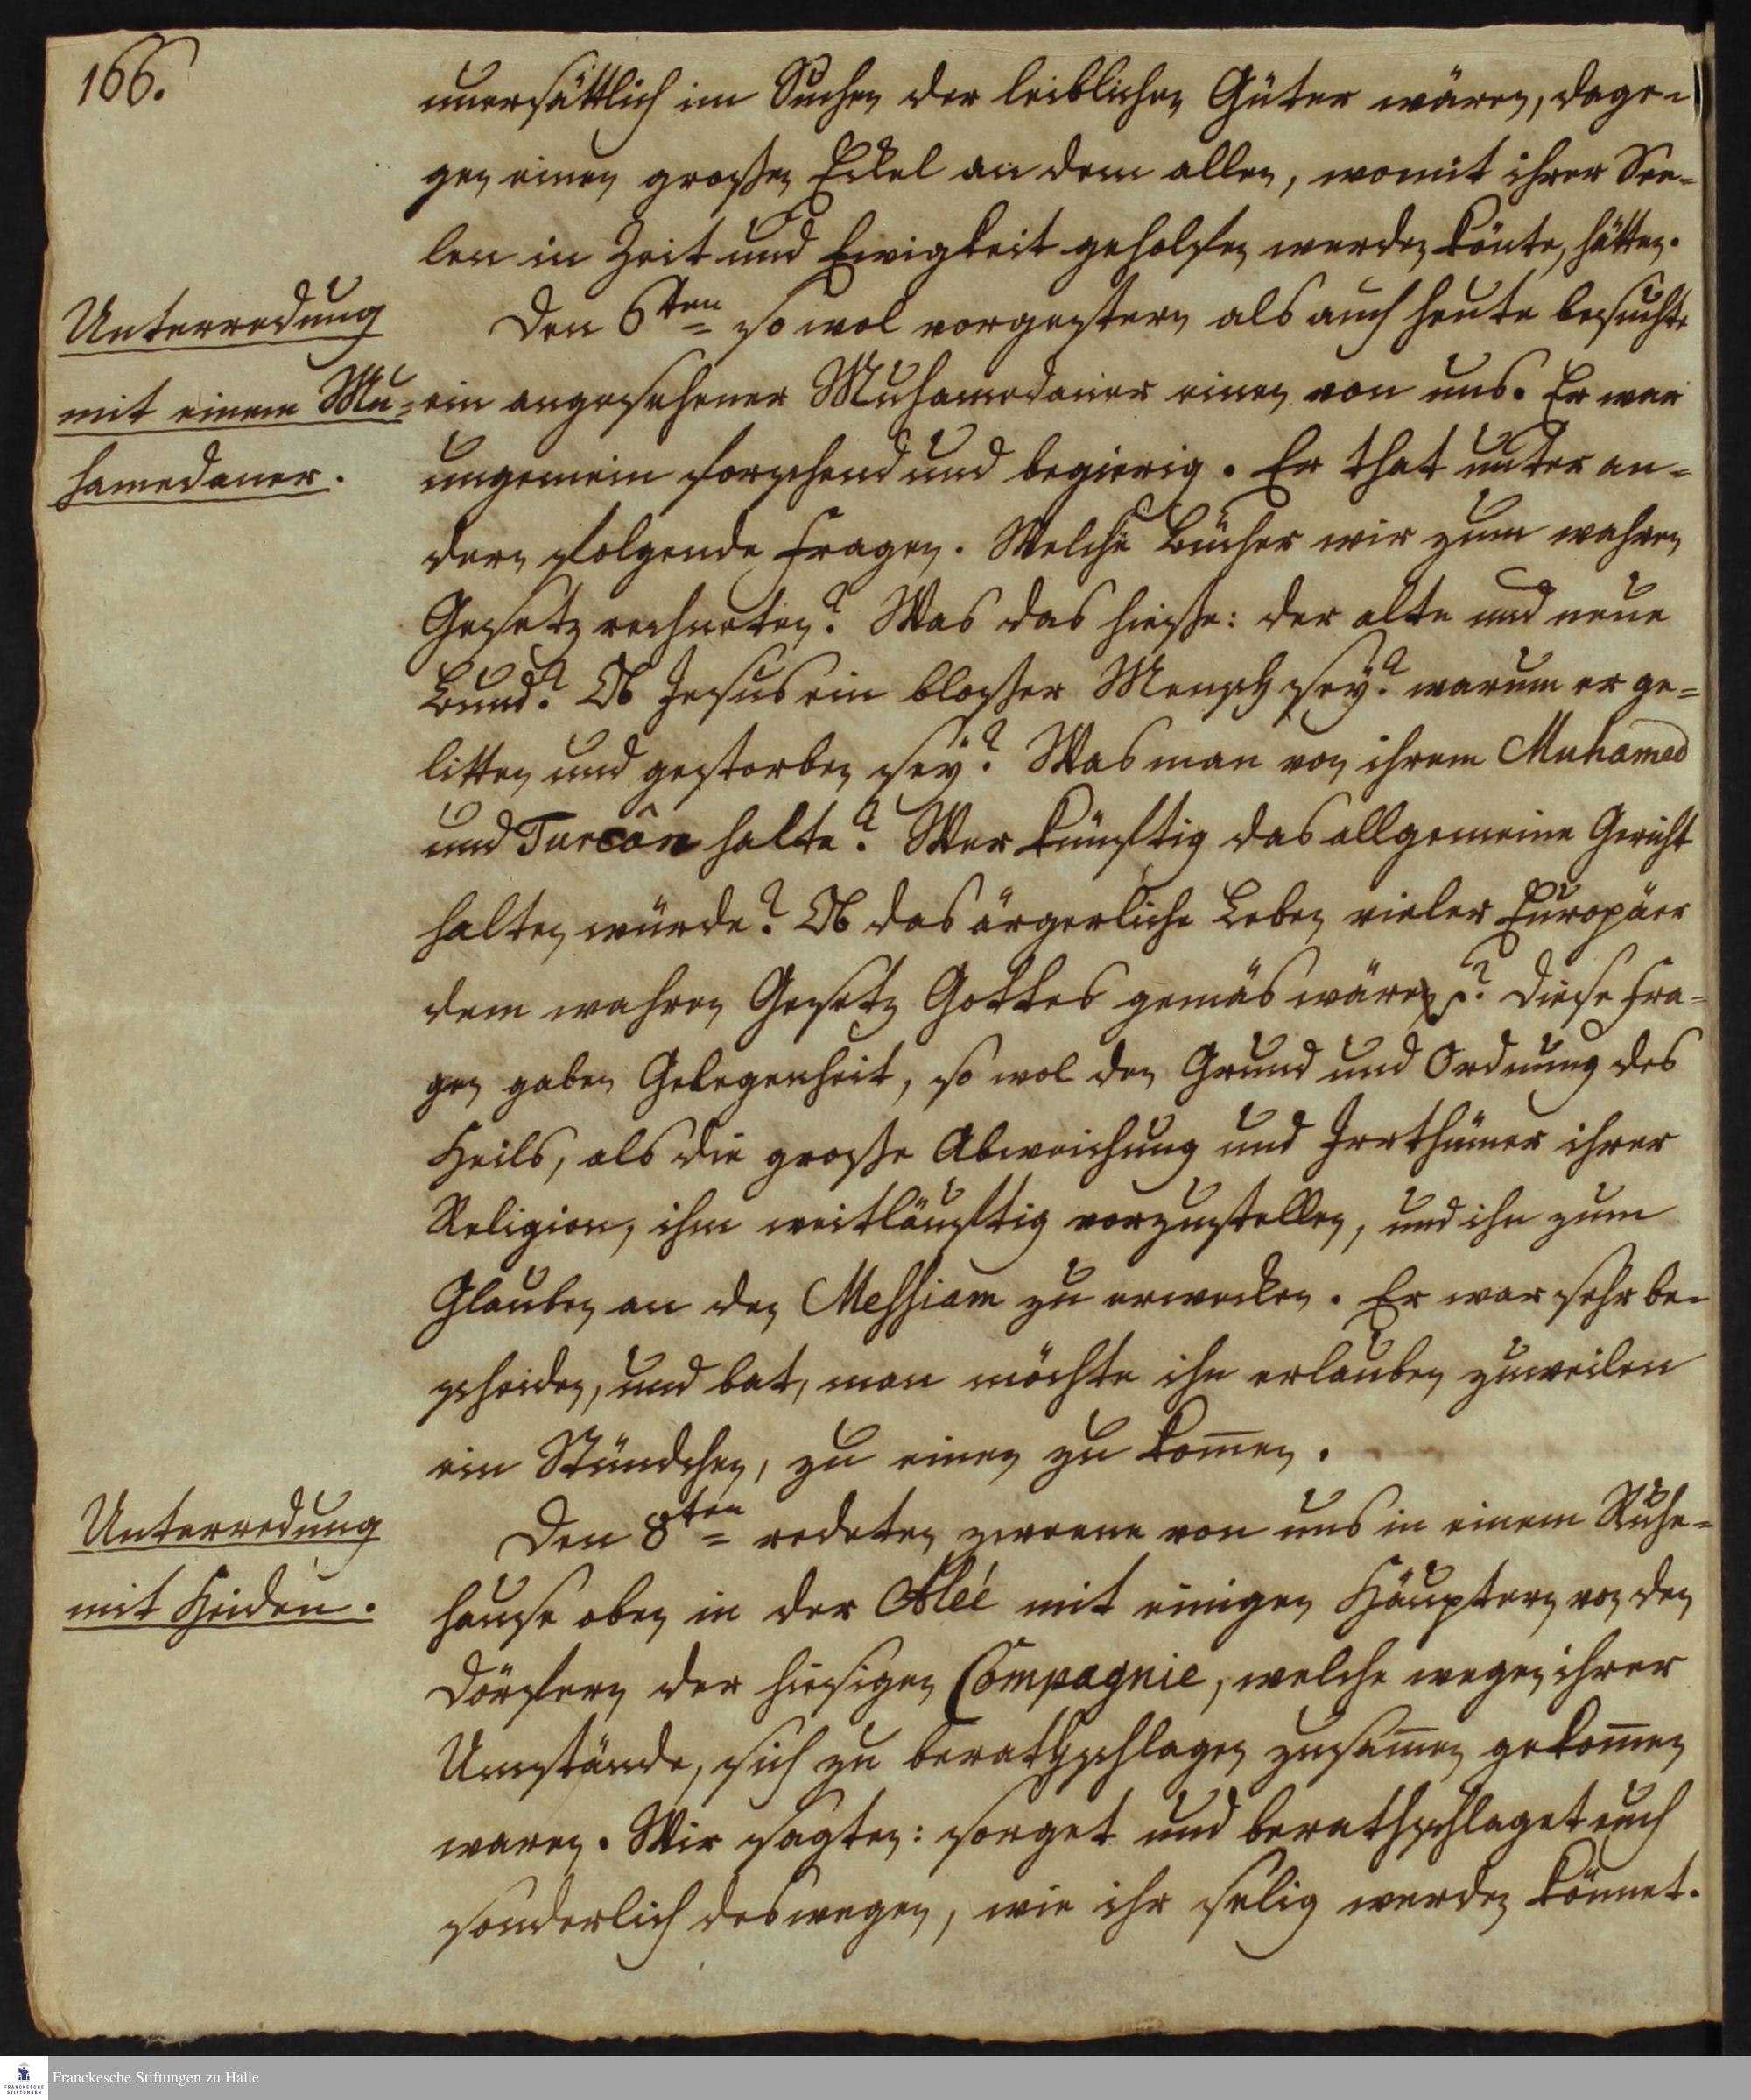 166.
unersättlich im Suchen der leiblichen Güter wären, dage-
gen einen großen Eckel an dem allen, womit ihrer See-
len in Zeit und Ewigkeit geholfen werden könte, hätten.
Unterredung
mit einem Mu-
hamedaner.
Den 6ten so wol vorgestern als auch heute besuchte
ein angesehener Muhamedaner einen von uns. Er war
ungemein forschend und begierig. Er that unter an-
dern folgende Fragen. Welche Bücher wir zum wahren
Gesetz rechneten? Was das hieße: der alte und neue
Bund? Ob Jesus ein bloßer Mensch sey? warum er ge-
litten und gestorben sey? Was man von ihrem Muhamed
und Turcân halte? Wer künftig das allgemeine Gericht
halten würde? Ob das ärgerliche Leben vieler Europäer
dem wahren Gesetz Gottes gemäs wäre? Diese Fra-
gen gaben Gelegenheit, so wol den Grund und Ordnung des
Heils, als die große Abweichung und Irrthümer ihrer
Religion, ihm weitläuftig vorzustellen, und ihn zum
Glauben an den Messiam zu erwecken. Er war sehr be-
scheiden, und bat, man möchte ihn erlauben zuweilen
ein Stündchen, zu einen zu kom̄en.
Unterredung
mit Heiden.
Den 8ten redeten zweene von uns in einem Ruhe-
hause oben in der Aleé mit einigen Häuptern von den
Dörfern der hiesigen Compagnie, welche wegen ihrer
Umstände, sich zu berathschlagen zusam̄en gekom̄en
waren. Wir sagten: sorget und berathschlaget euch
sonderlich deswegen, wie ihr selig werden könnet.
Franckesche Stiftungen zu Halle